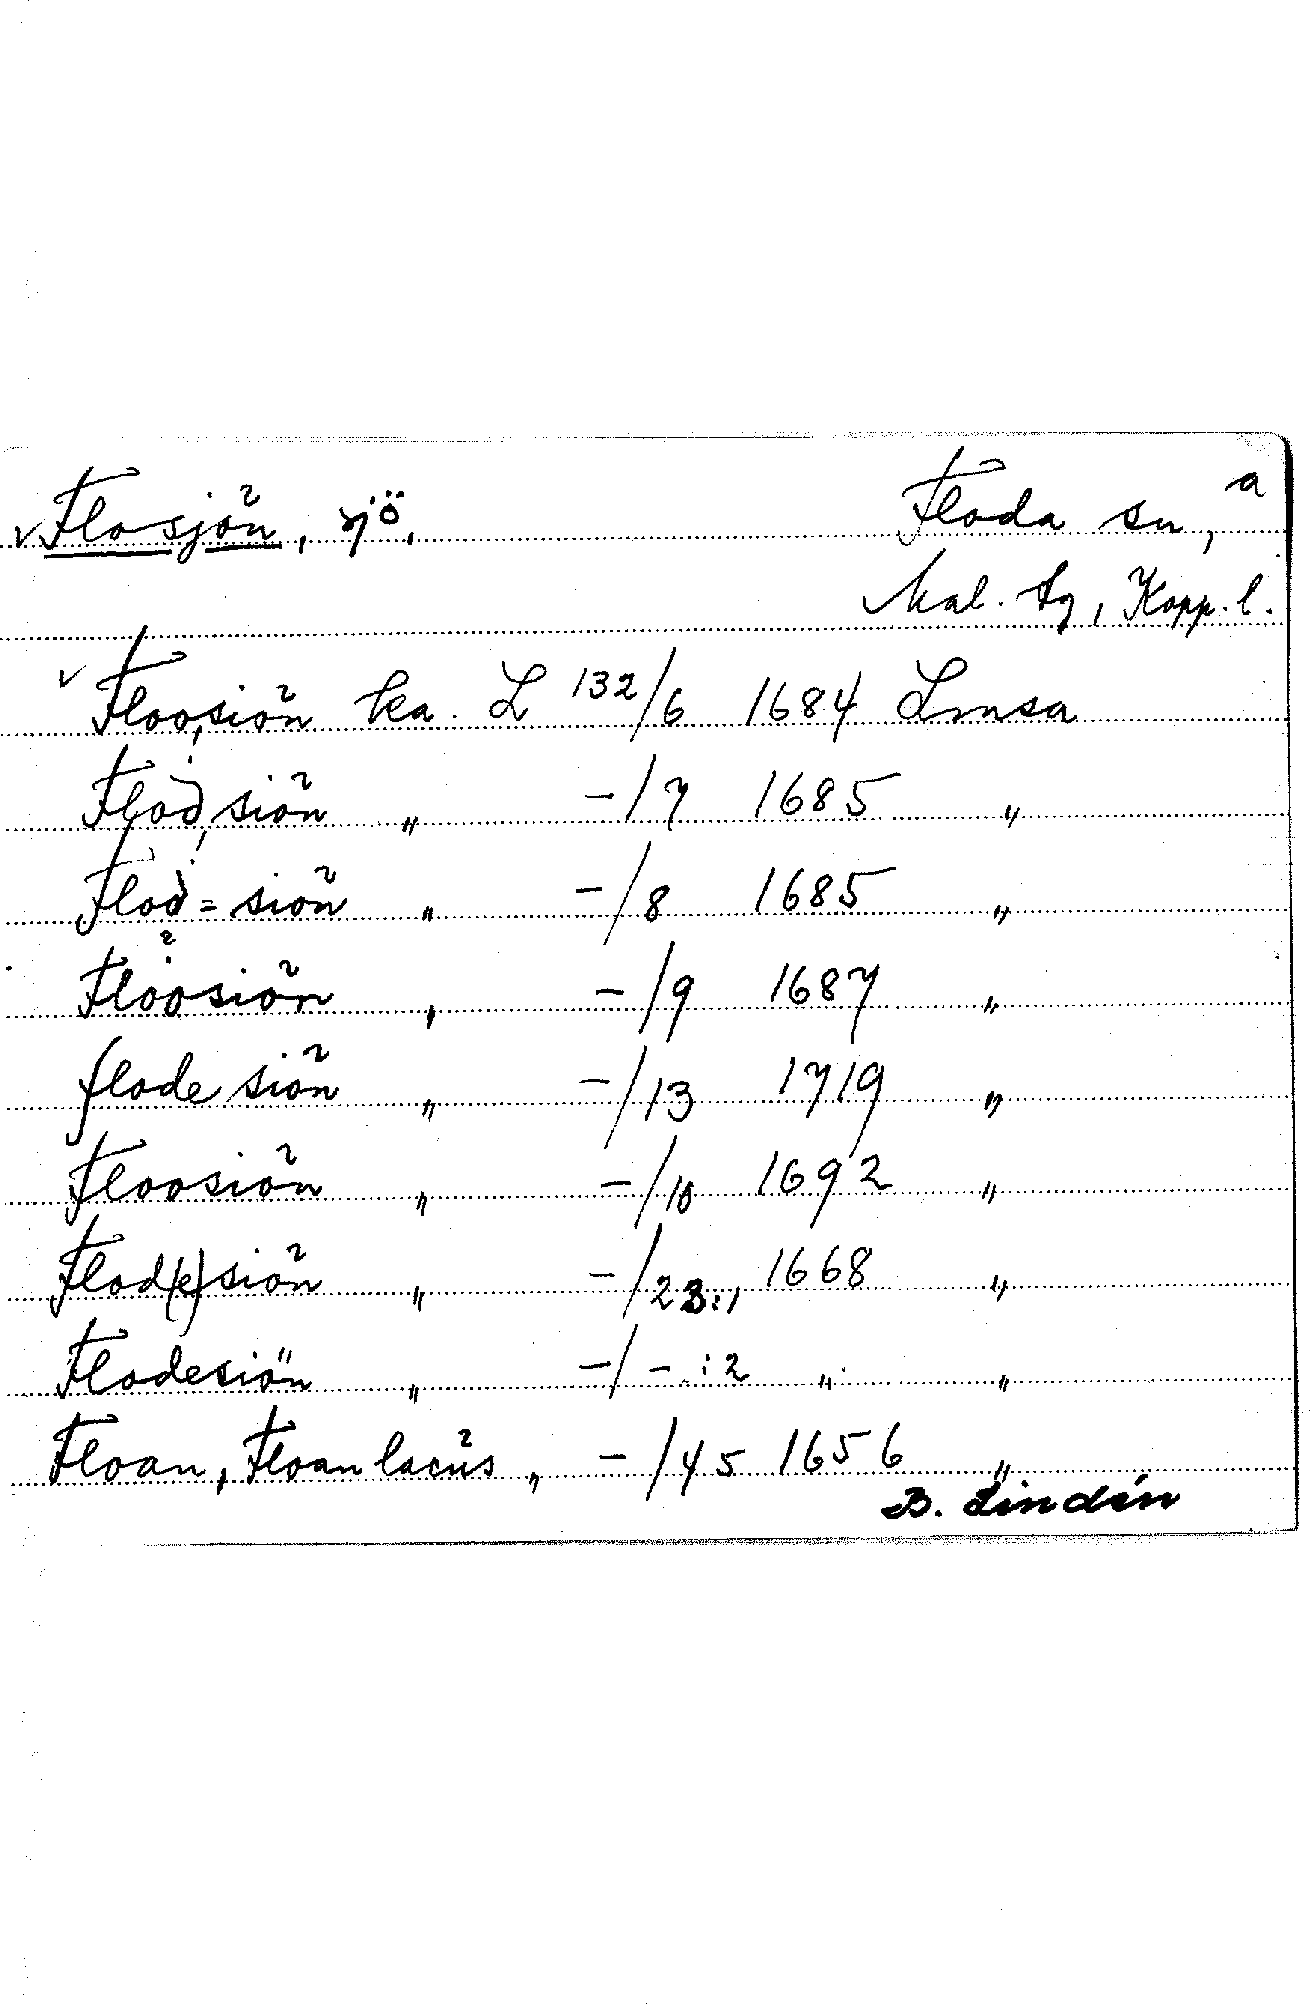 ✓ Flosjön, sjö. Floda sn, a
Mal. tg, Kopp. l.
✓ Floo,siön ka. L 132/6 1684 Lmsa
Flod,siön " -/7 1685 "
Flod=siön " -/8 1685 "
Flöosiön " -/9 1687 "
flode siön " -/13 1719 "
Floosiön " -/10 1692 "
Flod(e)siön " -/23:1 1668 "
Flodesiön " -/-:2 " "
Floan, Floan lacus " -/45 1656 "
B. Lindén